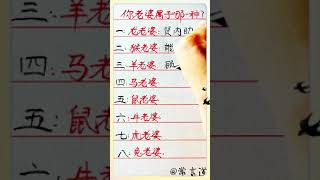 你老婆属于哪一种?
一:龙老婆:贤内助
二:猴老婆:能
三:羊老婆:
四:马老婆
五:鼠老婆
六:牛老婆
七:虎老婆
八:兔老婆
@常言道
三:
四:马
五:鼠